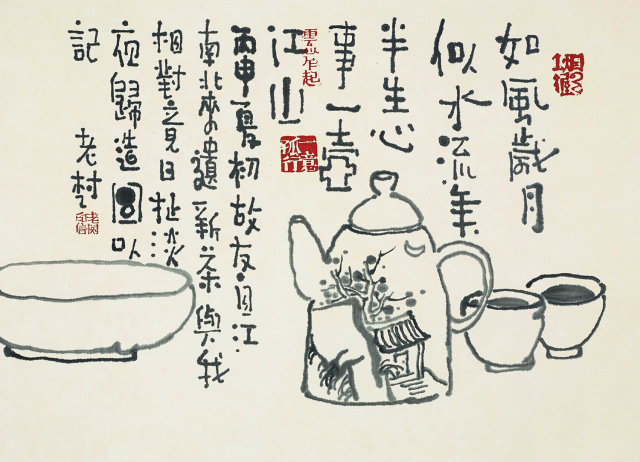 如風歲月
似水流年
半生心
事一壺
江山
一意孤行
丙申夏初故友自江
南北來遺新茶與我
相對竟日扯淡
夜歸造圖以
記
老村